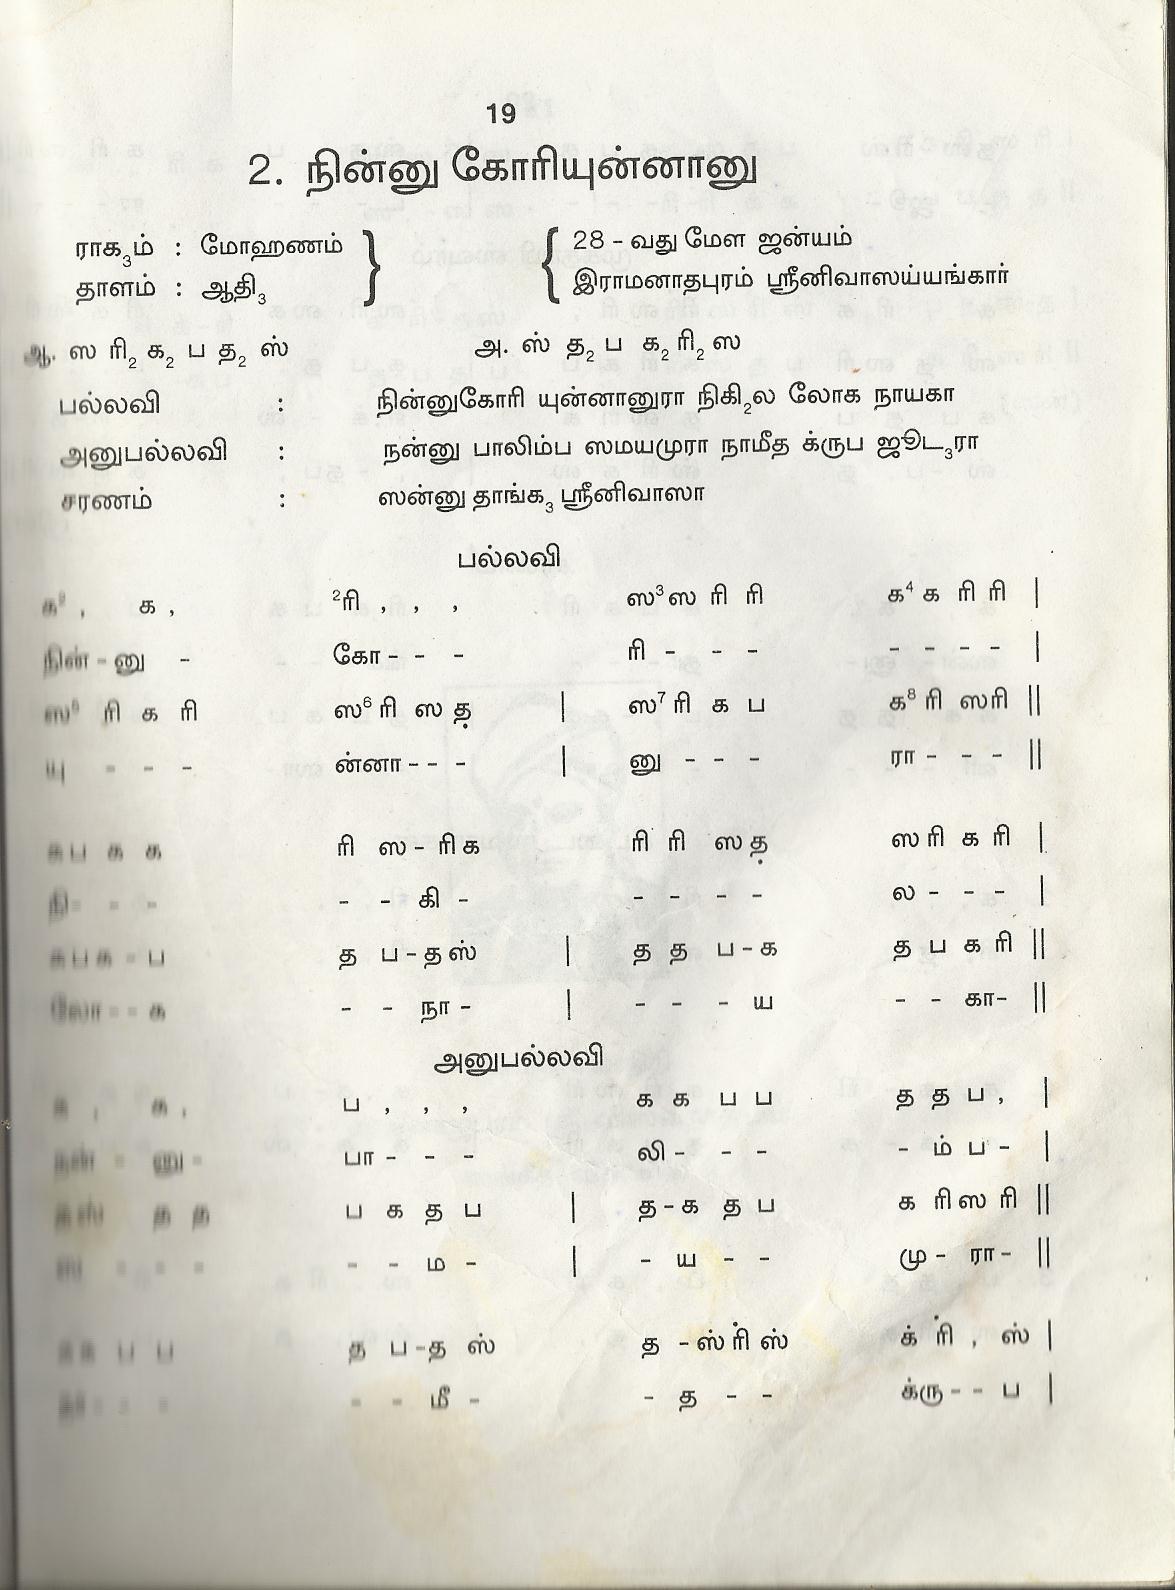 19
2. நின்னு கோரியுன்னானு
ராக₃ம் : மோஹணம் } { 28 - வது மேள ஜன்யம்
தாளம் : ஆதி₃ இராமனாதபுரம் ஸ்ரீனிவாஸய்யங்கார்
ஆ. ஸ ரி₂ க₂ ப த₂ ஸ் அ. ஸ் த₂ ப க₂ ரி₂ ஸ
பல்லவி : நின்னுகோரி யுன்னானுரா நிகி₂ல லோக நாயகா
அனுபல்லவி : நன்னு பாலிம்ப ஸமயமுரா நாமீத க்ருப ஜூட₃ரா
சரணம் : ஸன்னு தாங்க₃ ஸ்ரீனிவாஸா
பல்லவி
க , க , ²ரி , , , ஸ³ஸ ரி ரி க⁴ க ரி ரி |
நின் - னு - கோ - - - ரி - - - - - - - |
ஸ ரி க ரி ஸ⁶ ரி ஸ த̣ | ஸ⁷ ரி க ப க⁸ ரி ஸரி ||
யு - - - ன்னா - - - | னு - - - ரா - - - ||
க ப க க ரி ஸ - ரிக ரி ரி ஸத̣ ஸரி க ரி |
நி - - - - - கி - - - - - ல - - - |
க ப க - ப த ப - தஸ் | த த ப - க த ப க ரி ||
லோ - - க - - நா - | - - - ய - - கா - ||
அனுபல்லவி
க , க , ப , , , க க ப ப த த ப , |
நன் - னு - பா - - - லி - - - - ம் ப - |
தஸ் த த ப க த ப | த - க த ப க ரிஸரி ||
ஸ - - - - - ம - | - ய - - மு - ரா - ||
க க ப ப த ப - த ஸ் த - ஸ்ரி̇ஸ் க் ரி̇ , ஸ் |
- - மீ - - த - - க்ரு - - ப |